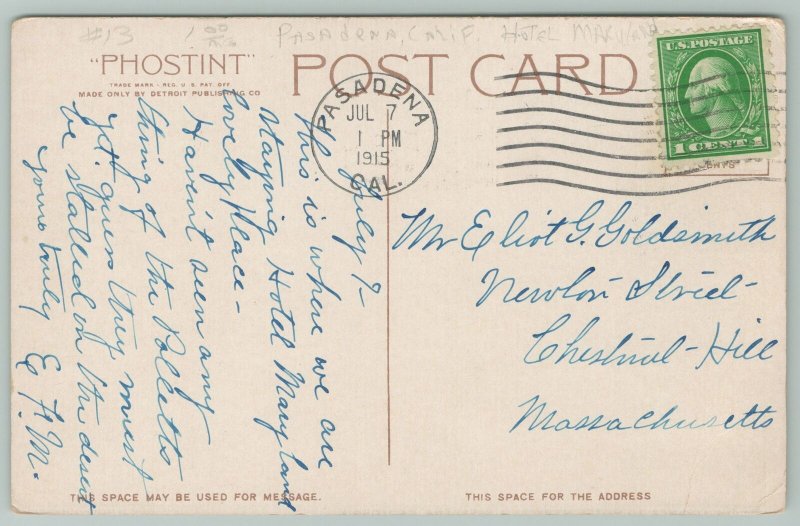 #13 1.00 PASADENA, CALIF. HOTEL MARYLAND
"PHOSTINT"
TRADE MARK - REG. U.S. PAT. OFF
MADE ONLY BY DETROIT PUBLISHING CO
POST CARD
PASADENA
JUL 7
1 PM
1915
CAL.
U.S. POSTAGE
1 CENT 1
July 7-
This is where we are
staying Hotel Maryland
Lovely place -
Haven't seen any
thing of the Polletts
yet. guess they must
be stalled on the desert
yours truly E.F.M.
Mr Eliot G. Goldsmith
Newton Street-
Chestnut-Hill
Massachusetts
THIS SPACE MAY BE USED FOR MESSAGE.
THIS SPACE FOR THE ADDRESS